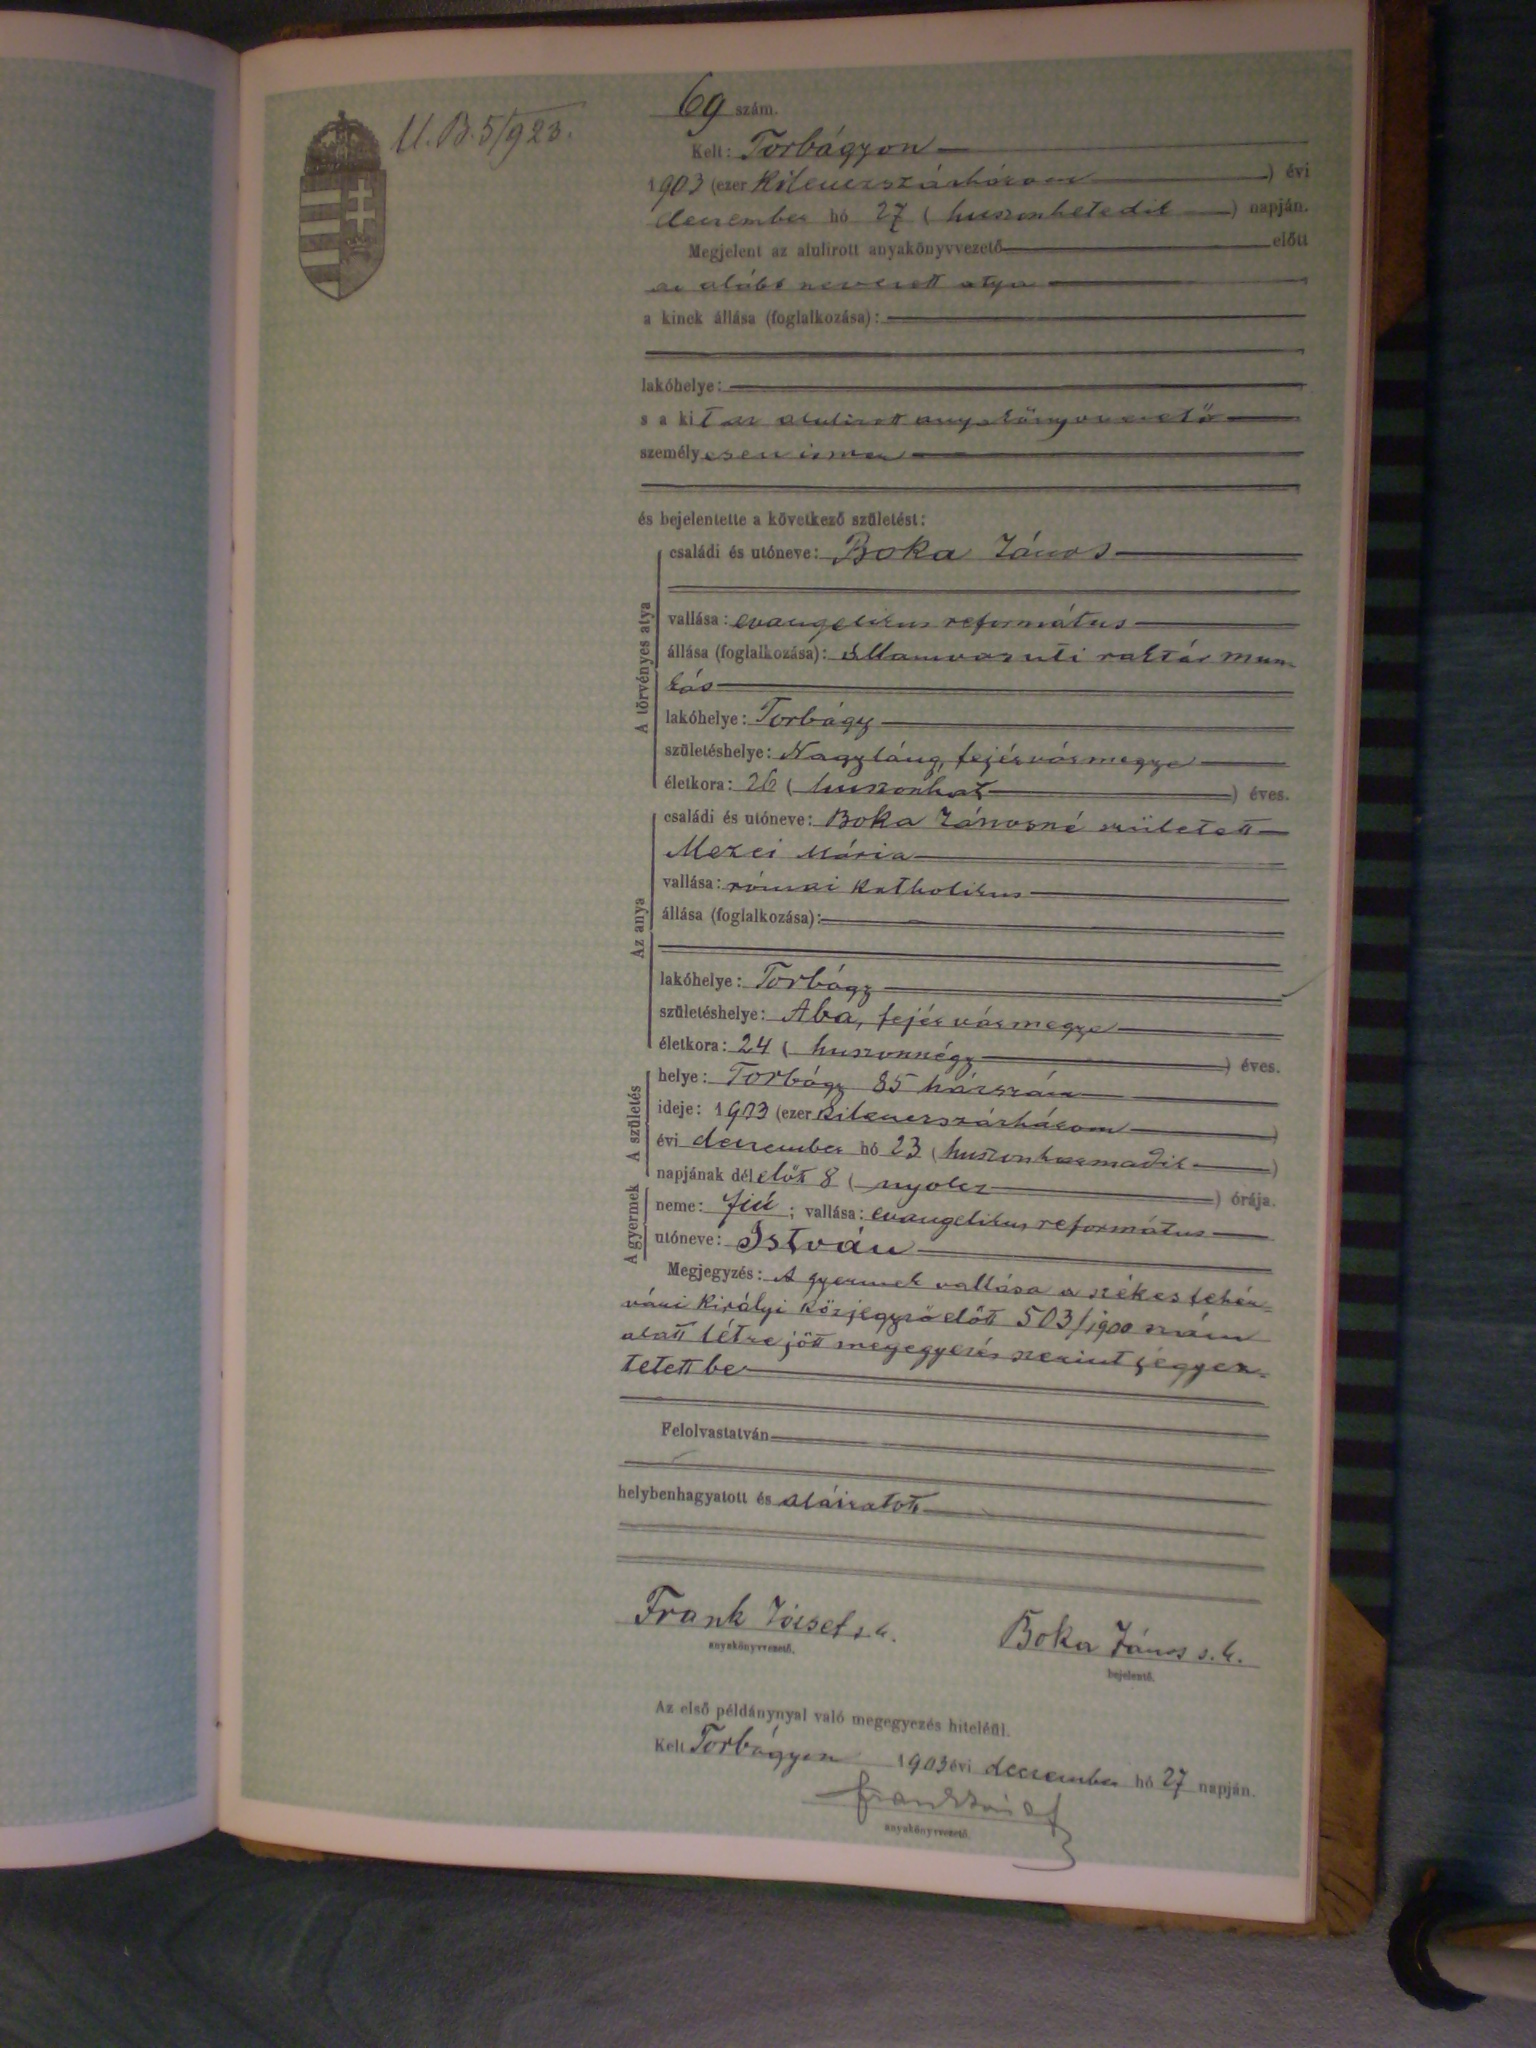 U. B. 5/923.
69 szám.
Kelt: Torbágyon
1903 (ezer kilenczszázhárom) évi
deczember hó 27 (huszonhetedik) napján.
Megjelent az alulirott anyakönyvvezető előtt
az alább nevezett atya
a kinek állása (foglalkozása):
lakóhelye:
s a kit az alulirott anyakönyvvezető
személyesen ismer
és bejelentette a következő születést:
A törvényes atya
családi és utóneve: Boka János
vallása: evangelikus református
állása (foglalkozása): államvasuti raktár mun-
kás
lakóhelye: Torbágy
születéshelye: Nagyláng, fejérvármegye
életkora: 26 (huszonhat) éves.
Az anya
családi és utóneve: Boka Jánosné született
Mezei Mária
vallása: római katholikus
állása (foglalkozása):
lakóhelye: Torbágy
születéshelye: Aba, fejérvármegye
életkora: 24 (huszonnégy) éves.
A születés
helye: Torbágy 85 házszám
ideje: 1903 (ezer kilenczszázhárom)
évi deczember hó 23 (huszonharmadik)
napjának délelőtt 8 (nyolcz) órája.
A gyermek
neme: fiú; vallása: evangelikus református
utóneve: István
Megjegyzés: A gyermek vallása a székesfehér-
vári királyi közjegyző előtt 503/1900 szám
alatt létrejött megegyezés szerint jegyez-
tetett be
Felolvastatván
helybenhagyatott és aláiratott
Frank József s. k.
anyakönyvvezető.
Boka János s. k.
bejelentő.
Az első példánynyal való megegyezés hiteléül.
Kelt Torbágyon 1903 évi deczember hó 27 napján.
Frank József
anyakönyvvezető.